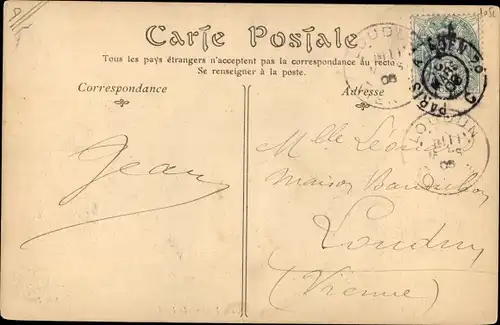 Carte Postale
Tous les pays étrangers n'acceptent pas la correspondance au recto
Se renseigner à la poste.
Correspondance
Adresse
LOUDUN
05
PARIS
Jean
Mlle Léonie
Maison
Loudun
(Vienne)